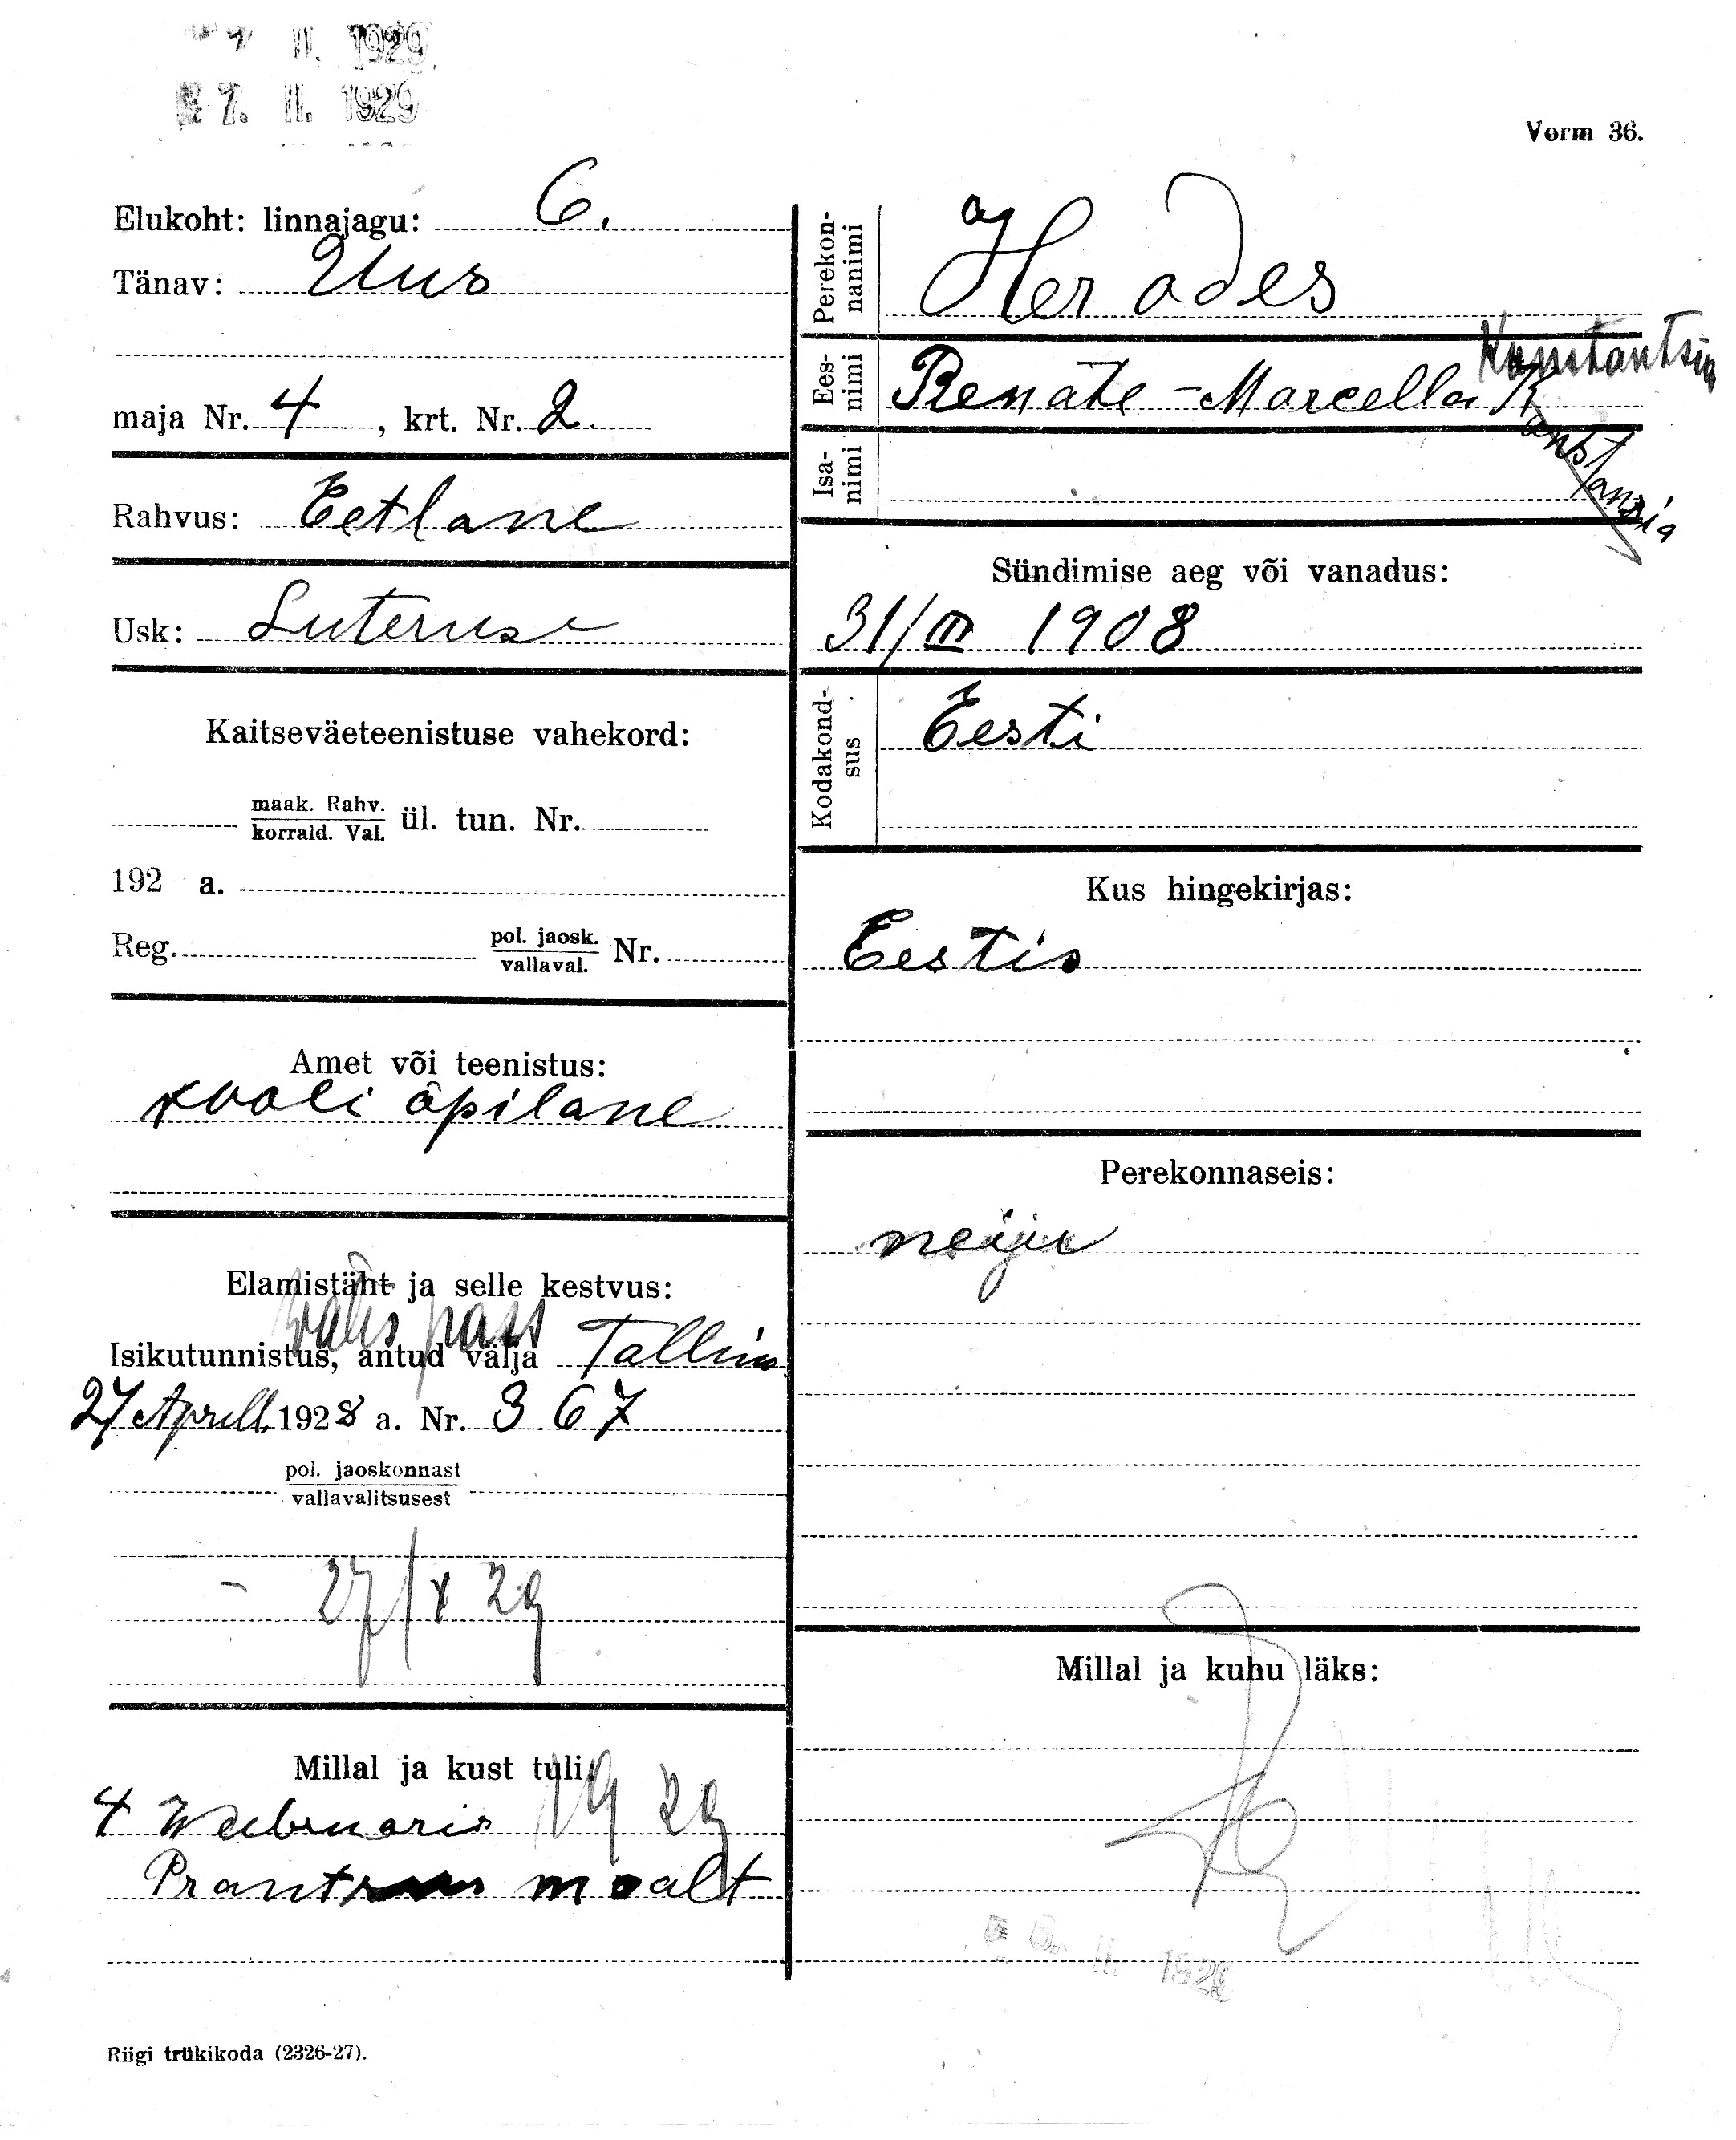 II. 1929
7. II. 1929
Vorm 36.
Elukoht: linnajagu: 6.
Tänav: Uus
maja Nr. 4, krt. Nr. 2.
Rahvus: Eetlane
Usk: Luteruse
Kaitseväeteenistuse vahekord:
maak. Rahv.
korrald. Val. ül. tun. Nr.
192 a.
Reg. pol. jaosk.
vallaval. Nr.
Amet või teenistus:
kooli õpilane
Elamistäht ja selle kestvus:
välis pass
Isikutunnistus, antud välja Tallinn
27 Aprill 1928 a. Nr. 367
pol. jaoskonnast
vallavalitsusest
- 27/X 29
Millal ja kust tuli:
4 Weebruaris 1929
Prants maalt
Perekon-
nanimi Herodes
Ees-
nimi Renate-Marcella Konstantsia
Konstansia
Isa-
nimi
Sündimise aeg või vanadus:
31/III 1908
Kodakond-
sus Eesti
Kus hingekirjas:
Eestis
Perekonnaseis:
neiu
Millal ja kuhu läks:
II. 192
Riigi trükikoda (2326-27).